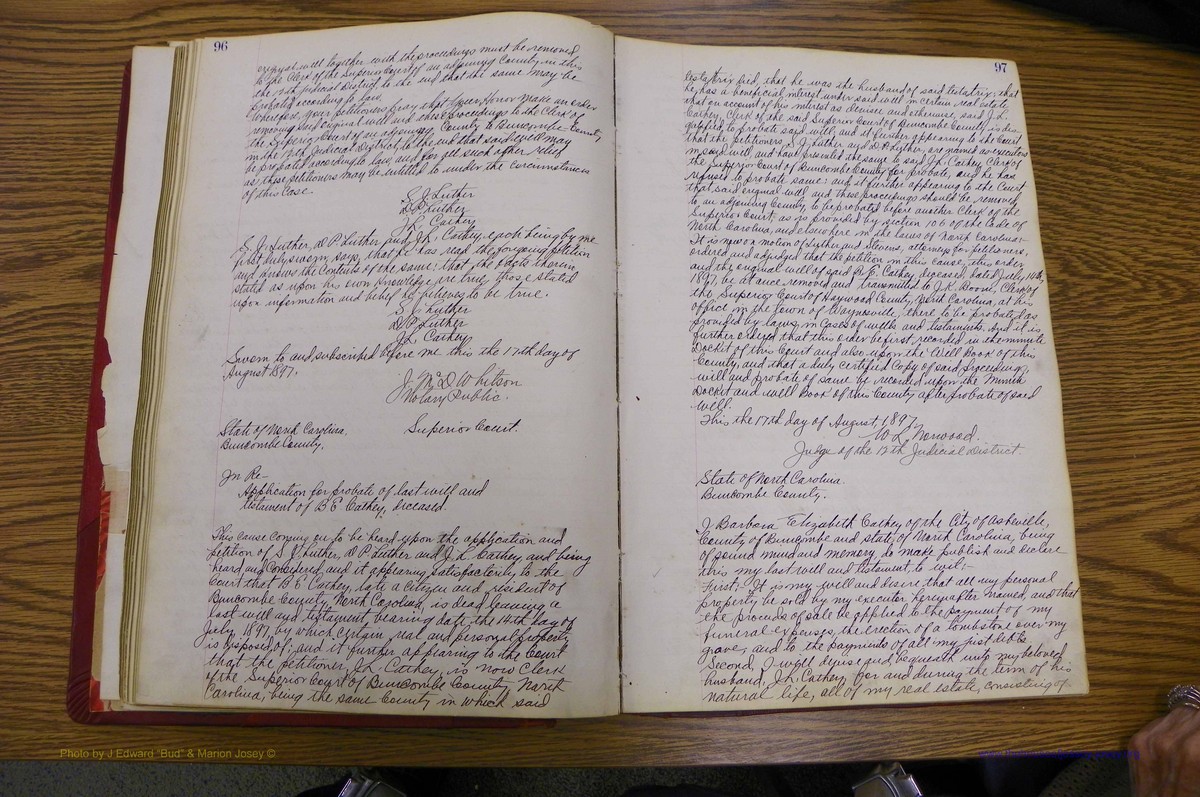 96
original will together with the proceedings must be removed
to the Clerk of the Superior Court of an adjoining County in this
the 12th Judicial District, to the end that the same may be
probated according to law.
Wherefore your petitioners pray that your Honor make an order
removing said original will and these proceedings to the Clerk of
the Superior Court of an adjoining County to Buncombe County,
in the 12th Judicial District, to the end that said will may
be probated according to law, and for all such other relief
as these petitioners may be intitled to under the circumstances
of this Case.
S. J. Luther
D P Luther
J L Cathey
S. J. Luther, D P Luther and J. L. Cathey, each being by me
first duly sworn, says, that he has read the forgoing petition
and knows the contents of the same; that the facts therein
stated as upon his own knowledge are true, those stated
upon information and belief he believes to be true.
S. J. Luther
D. P. Luther
J L Cathey
Sworn to and subscribed before me this the 17th day of
August 1897.
J. McD Whitson
Notary Public.
State of North Carolina. Superior Court.
Buncombe County.
In Re-
Application for probate of last will and
testament of B E Cathey, deceased.
This cause coming on to be heard upon the application and
petition of S J Luther, D P Luther and J L Cathey, and being
heard and considered, and it appearing satisfactorily to the
Court that B E Cathey, late a citizen and resident of
Buncombe County North Carolina, is dead leaving a
last will and testament bearing date the 14th day of
July 1897, by which certain real and personal property
is disposed of; and it further appearing to the Court
that the petitioner, J L. Cathey, is now Clerk
of the Superior Court of Buncombe County, North
Carolina, being the same County in which said
97
testatrix died, that he was the husband of said testatrix; that
he has a beneficial interest under said will in certain real estate,
that on account of his interest as devisee and otherwise, said J. L.
Cathey, Clerk of the said Superior Court of Buncombe County is
to probate said will, and it further appearing to the Court
that the petitioners, S. J. Luther and D. P. Luther, are named as executors
in said will, and have presented the same to said J. L. Cathey Clerk of
the Superior Court of Buncombe County for probate, and he has
refused to probate same; and it further appearing to the Court
that said original will and these proceedings should be removed
to an adjoining County to be probated before another Clerk of the
Superior Court, as is provided by section 106 of the Code of
North Carolina, and elsewhere in the laws of North Carolina:-
It is now on motion of Luther and Stevens, attorneys for petitioners,
ordered and adjudged that the petition in this cause, this order
and the original will of said B. E. Cathey, deceased, dated July 14th,
1897, be at once removed and transmitted to J. K. Boone, Clerk of
the Superior Court of Haywood County, North Carolina, at his
office in the town of Waynesville, there to be probated as
provided by law, in cases of wills and testaments. And it is
further ordered that this order be first recorded in the minute
Docket of this Court and also upon the Will Book of this
County, and that a duly certified Copy of said proceedings,
will and probate of same by recoured upon the Minute
Docket and will Book of this County after probate of said
will.
This the 17th day of August, 1897.
W L Norwood.
Judge of the 12th Judicial District
State of North Carolina
Buncombe County.
I Barbara Elizabeth Cathey of the City of Asheville,
County of Buncombe and state of North Carolina, being
of sound mind and memory do make publish and declare
this my last will and testament, to wit:-
First: It is my will and desire that all my personal
property be sold by my executor hereinafter named, and that
the proceeds of sale be applied to the payment of my
funeral expenses, the erection of a tombstone over my
grave, and to the payment of all my just debts.
Second, I will devise and bequeath unto my beloved
husband, J. L. Cathey, for and during the term of his
natural life, all of my real estate, consisting of
Photo by J Edward "Bud" & Manon Josey ©